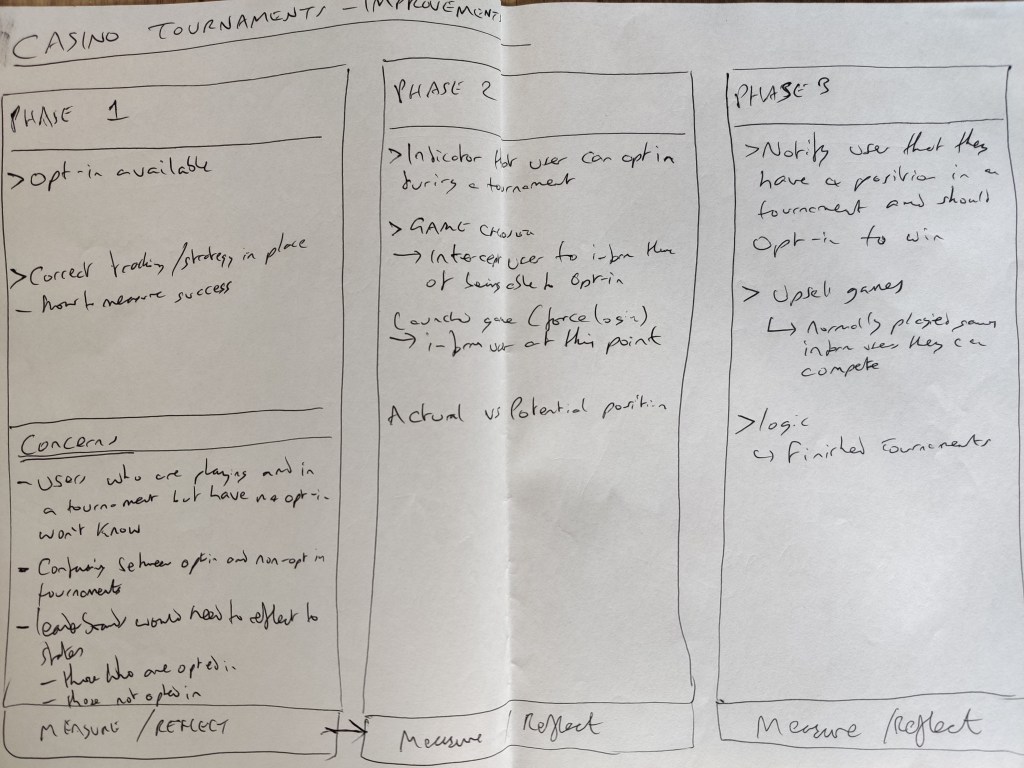 CASINO TOURNAMENTS - IMPROVEMENTS
PHASE 1
> Opt-in available
> Correct tracking/strategy in place
- how to measure success
Concerns
- Users who are playing and in
a tournament but have no opt-in
won't know
- Confusing between optin and non-opt in
tournaments
- leaderboard would need to reflect to
states
- those who are opted in
- those not opted in
MEASURE / REFLECT
PHASE 2
> Indicator that user can opt in
during a tournament
> GAME chosen
→ Intercept user to inform them
of being able to opt-in
Launched game (force login)
→ inform user at this point
Actural vs Potential position
Measure / Reflect
PHASE 3
> Notify user that they
have a position in a
tournament and should
Opt-in to win
> Upsell games
↳ Normally played games
inform users they can
compete
> logic
↳ Finished Tournaments
Measure / Reflect